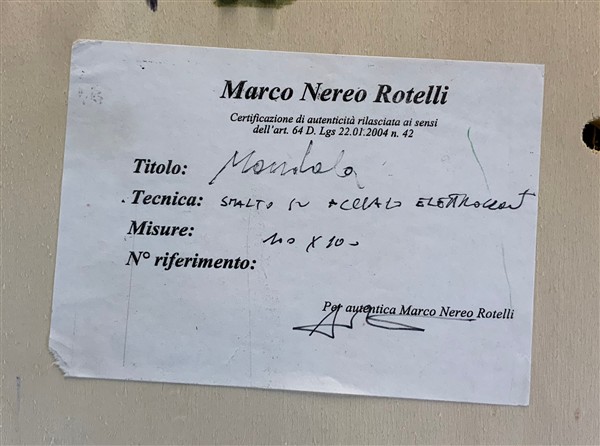 Marco Nereo Rotelli
Certificazione di autenticità rilasciata ai sensi
dell'art. 64 D. Lgs 22.01.2004 n. 42
Titolo: Mandala
Tecnica: SMALTO SU ACCIAIO
Misure: 100 X 100
N° riferimento:
Per autentica Marco Nereo Rotelli